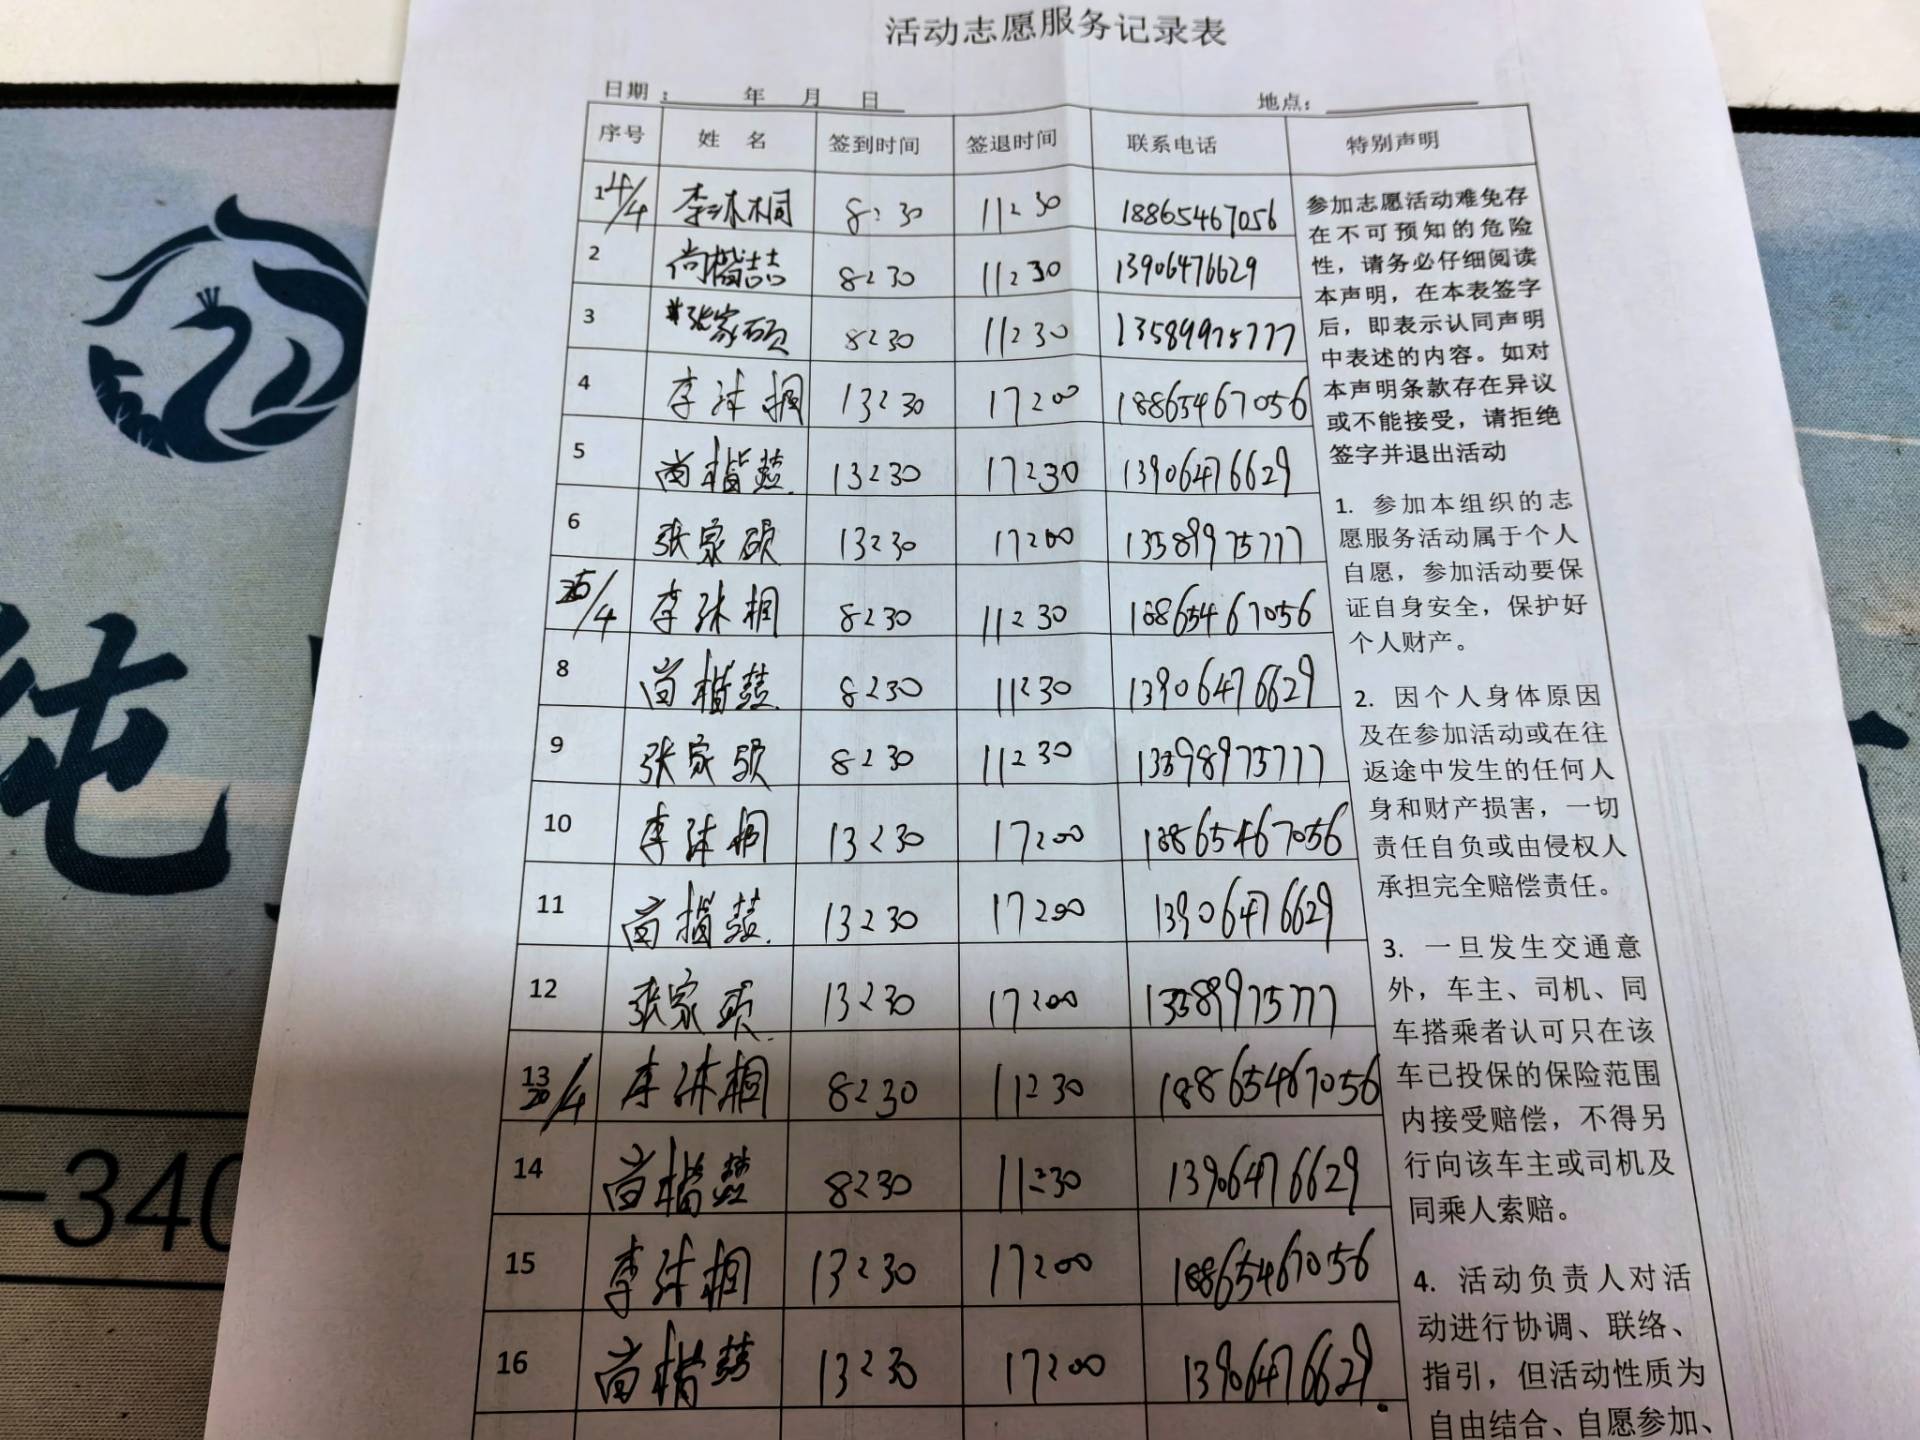 活动志愿服务记录表
日期： 年 月 日 地点：
序号 姓 名 签到时间 签退时间 联系电话 特别声明
1 4/4 李沐桐 8:30 11:30 18865467056
2 尚楷喆 8:30 11:30 13906476629
3 张家硕 8:30 11:30 13589975777
4 李沐桐 13:30 17:00 18865467056
5 尚楷喆 13:30 17:30 13906476629
6 张家硕 13:30 17:00 13589975777
5/4 李沐桐 8:30 11:30 18865467056
8 尚楷喆 8:30 11:30 13906476629
9 张家硕 8:30 11:30 13598975777
10 李沐桐 13:30 17:00 18865467056
11 尚楷喆 13:30 17:00 13906476629
12 张家硕 13:30 17:00 13589975777
13 20/4 李沐桐 8:30 11:30 18865467056
14 尚楷喆 8:30 11:30 13906476629
15 李沐桐 13:30 17:00 18865467056
16 尚楷喆 13:30 17:00 13906476629
参加志愿活动难免存
在不可预知的危险
性，请务必仔细阅读
本声明，在本表签字
后，即表示认同声明
中表述的内容。如对
本声明条款存在异议
或不能接受，请拒绝
签字并退出活动
1. 参加本组织的志
愿服务活动属于个人
自愿，参加活动要保
证自身安全，保护好
个人财产。
2. 因个人身体原因
及在参加活动或在往
返途中发生的任何人
身和财产损害，一切
责任自负或由侵权人
承担完全赔偿责任。
3. 一旦发生交通意
外，车主、司机、同
车搭乘者认可只在该
车已投保的保险范围
内接受赔偿，不得另
行向该车主或司机及
同乘人索赔。
4. 活动负责人对活
动进行协调、联络、
指引，但活动性质为
自由结合、自愿参加、
纯
-340